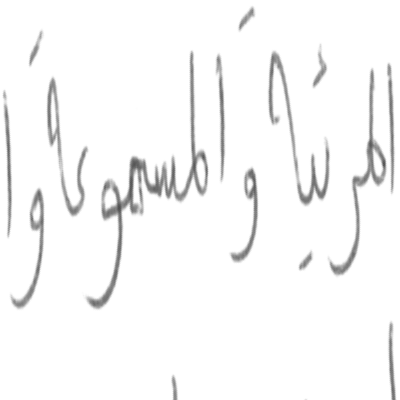 المرئية وَالمسموعة وَا